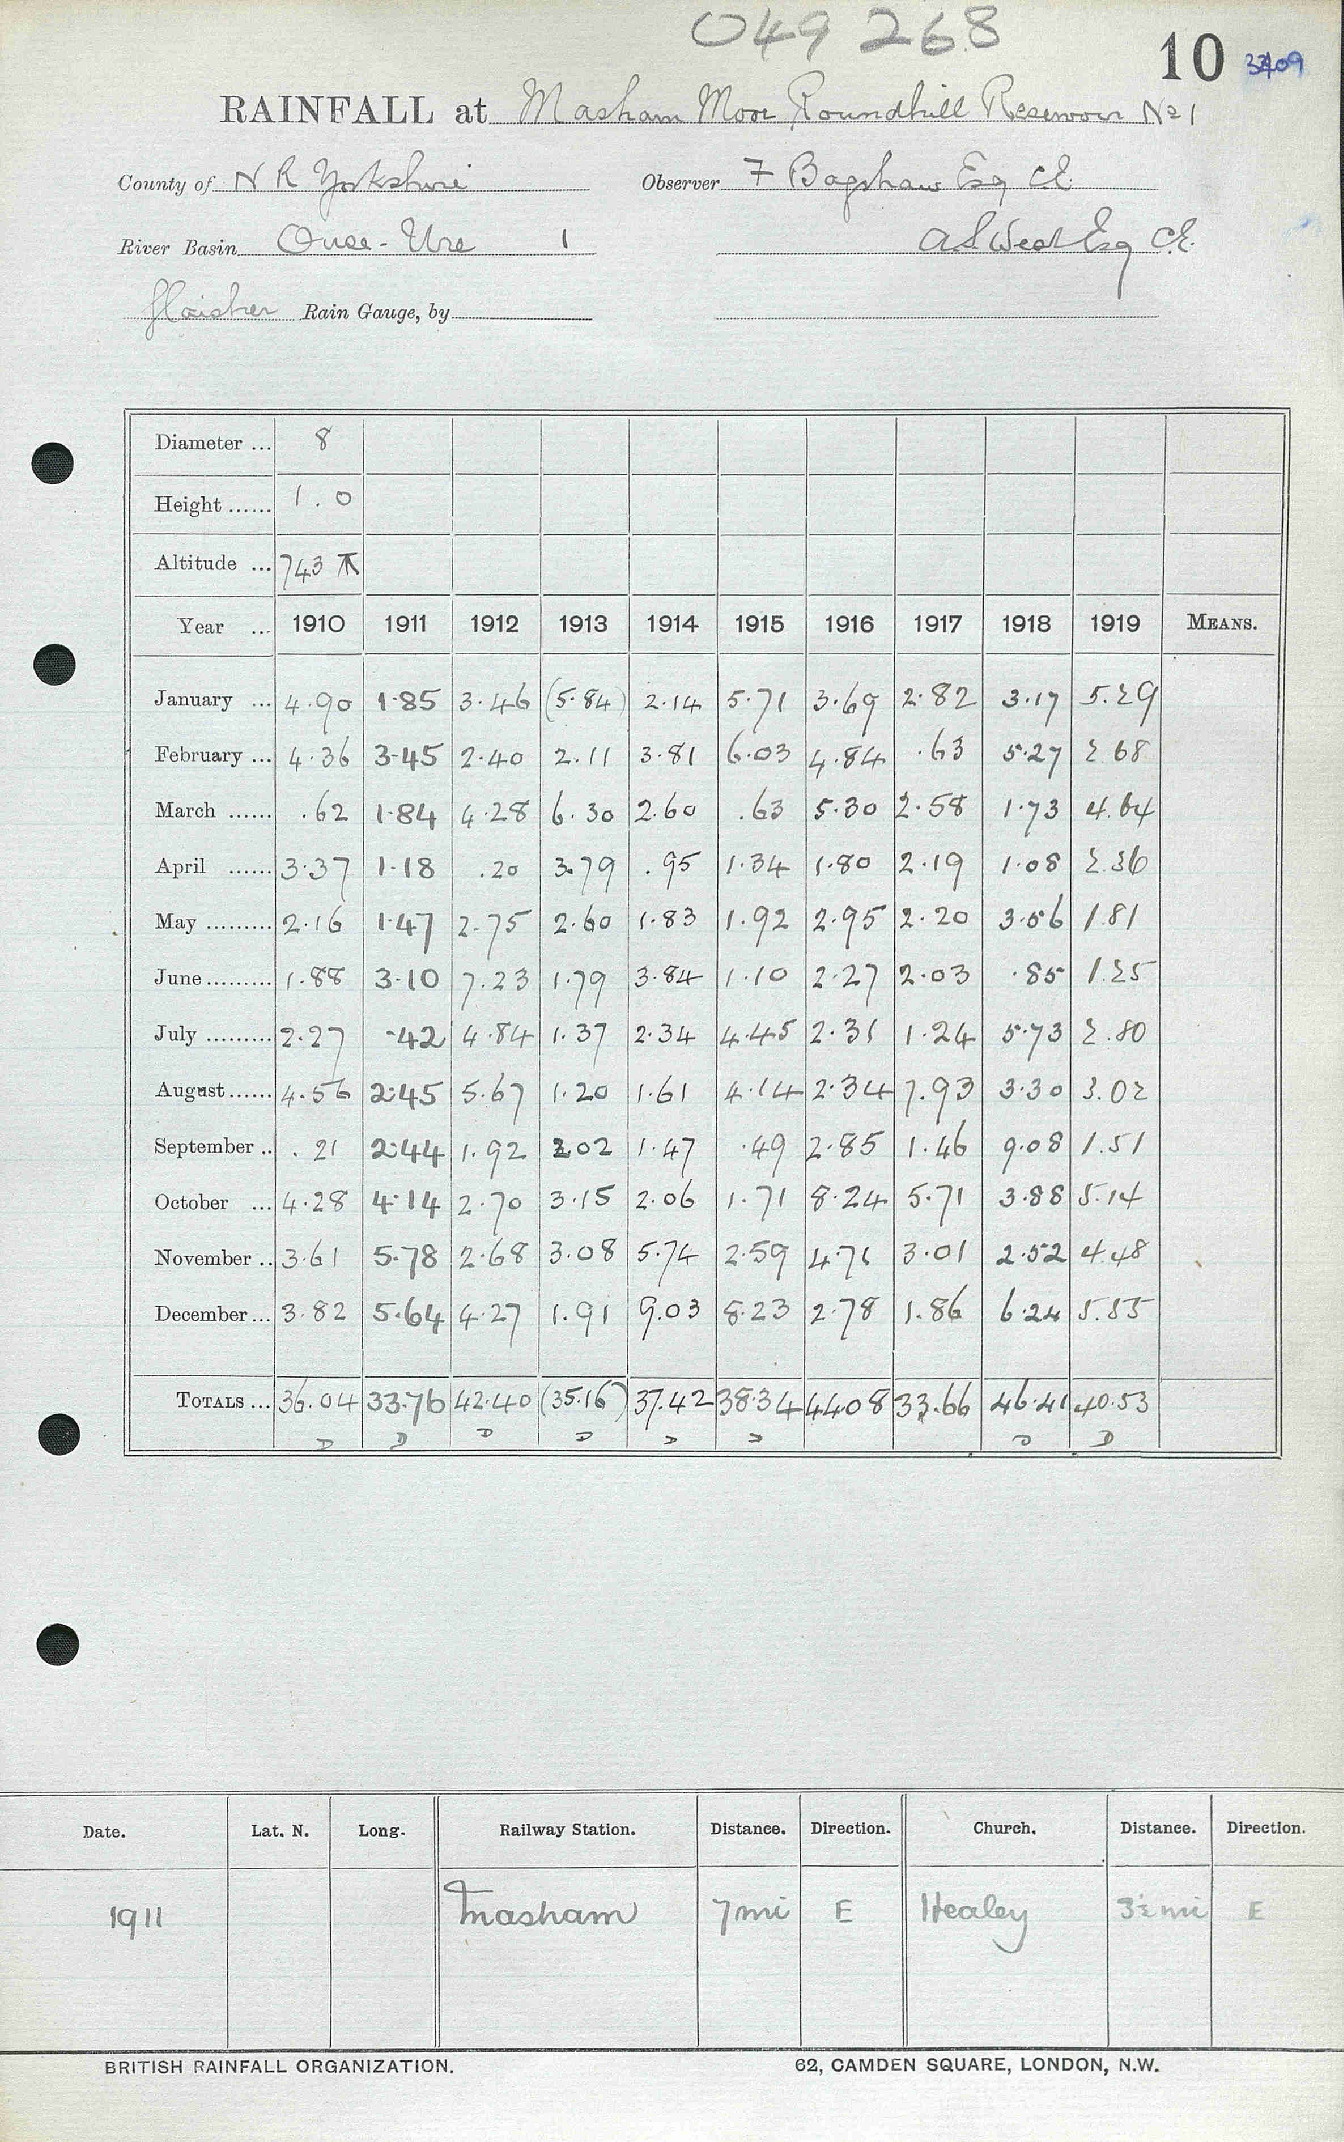 049 268
10 3309
RAINFALL at Masham Moor Roundhill Reservoir No 1
County of N R Yorkshire Observer F Bagshaw Esq CE
River Basin Ouse-Ure 1 A S West Esq CE.
Glaisher Rain Gauge, by
Diameter ... 8
Height ...... 1.0
Altitude ... 743
Year ... 1910 1911 1912 1913 1914 1915 1916 1917 1918 1919 MEANS.
January ... 4.90 1.85 3.46 (5.84) 2.14 5.71 3.69 2.82 3.17 5.29
February ... 4.36 3.45 2.40 2.11 3.81 6.03 4.84 .63 5.27 2.68
March ...... .62 1.84 4.28 6.30 2.60 .63 5.30 2.58 1.73 4.64
April ...... 3.37 1.18 .20 3.79 .95 1.34 1.80 2.19 1.08 2.36
May ......... 2.16 1.47 2.75 2.60 1.83 1.92 2.95 2.20 3.56 1.81
June ......... 1.88 3.10 7.23 1.79 3.84 1.10 2.27 2.03 .85 1.25
July ......... 2.27 .42 4.84 1.37 2.34 4.45 2.31 1.24 5.73 2.80
August ...... 4.56 2.45 5.67 1.20 1.61 4.14 2.34 7.93 3.30 3.02
September .. .21 2.44 1.92 2.02 1.47 .49 2.85 1.46 9.08 1.51
October ... 4.28 4.14 2.70 3.15 2.06 1.71 8.24 5.71 3.88 5.14
November .. 3.61 5.78 2.68 3.08 5.74 2.59 4.71 3.01 2.52 4.48
December ... 3.82 5.64 4.27 1.91 9.03 8.23 2.78 1.86 6.24 5.55
TOTALS ... 36.04 33.76 42.40 (35.16) 37.42 38.34 44.08 33.66 46.41 40.53
D D D D D D D D
Date. Lat. N. Long. Railway Station. Distance. Direction. Church. Distance. Direction.
1911 Masham 7 mi E Healey 3½ mi E
BRITISH RAINFALL ORGANIZATION. 62, CAMDEN SQUARE, LONDON, N.W.